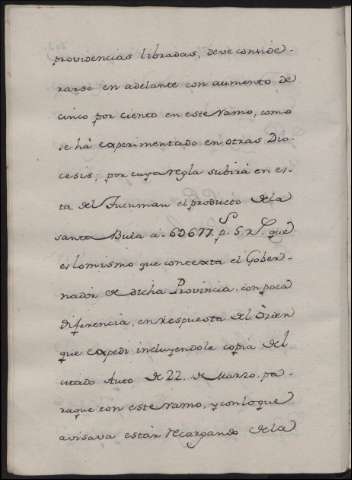 providencias libradas, deve conside-
rarse en adelante con aumento de
cinco por ciento en este Ramo, como
se há experimentado en otras Dio-
cesis; por cuya regla subirá en es-
ta del Tucuman el producto de la
santa Bula a 60677. p.s 5. r.s que
es lo mismo que contexta el Gober-
nador de dicha Provincia, con poca
diferencia, en respuesta del Orden
que expedi incluyendole copia del
citado Auto de 22. de Marzo, pa-
raque con este ramo, y con lo que
avisava estár recargando de la